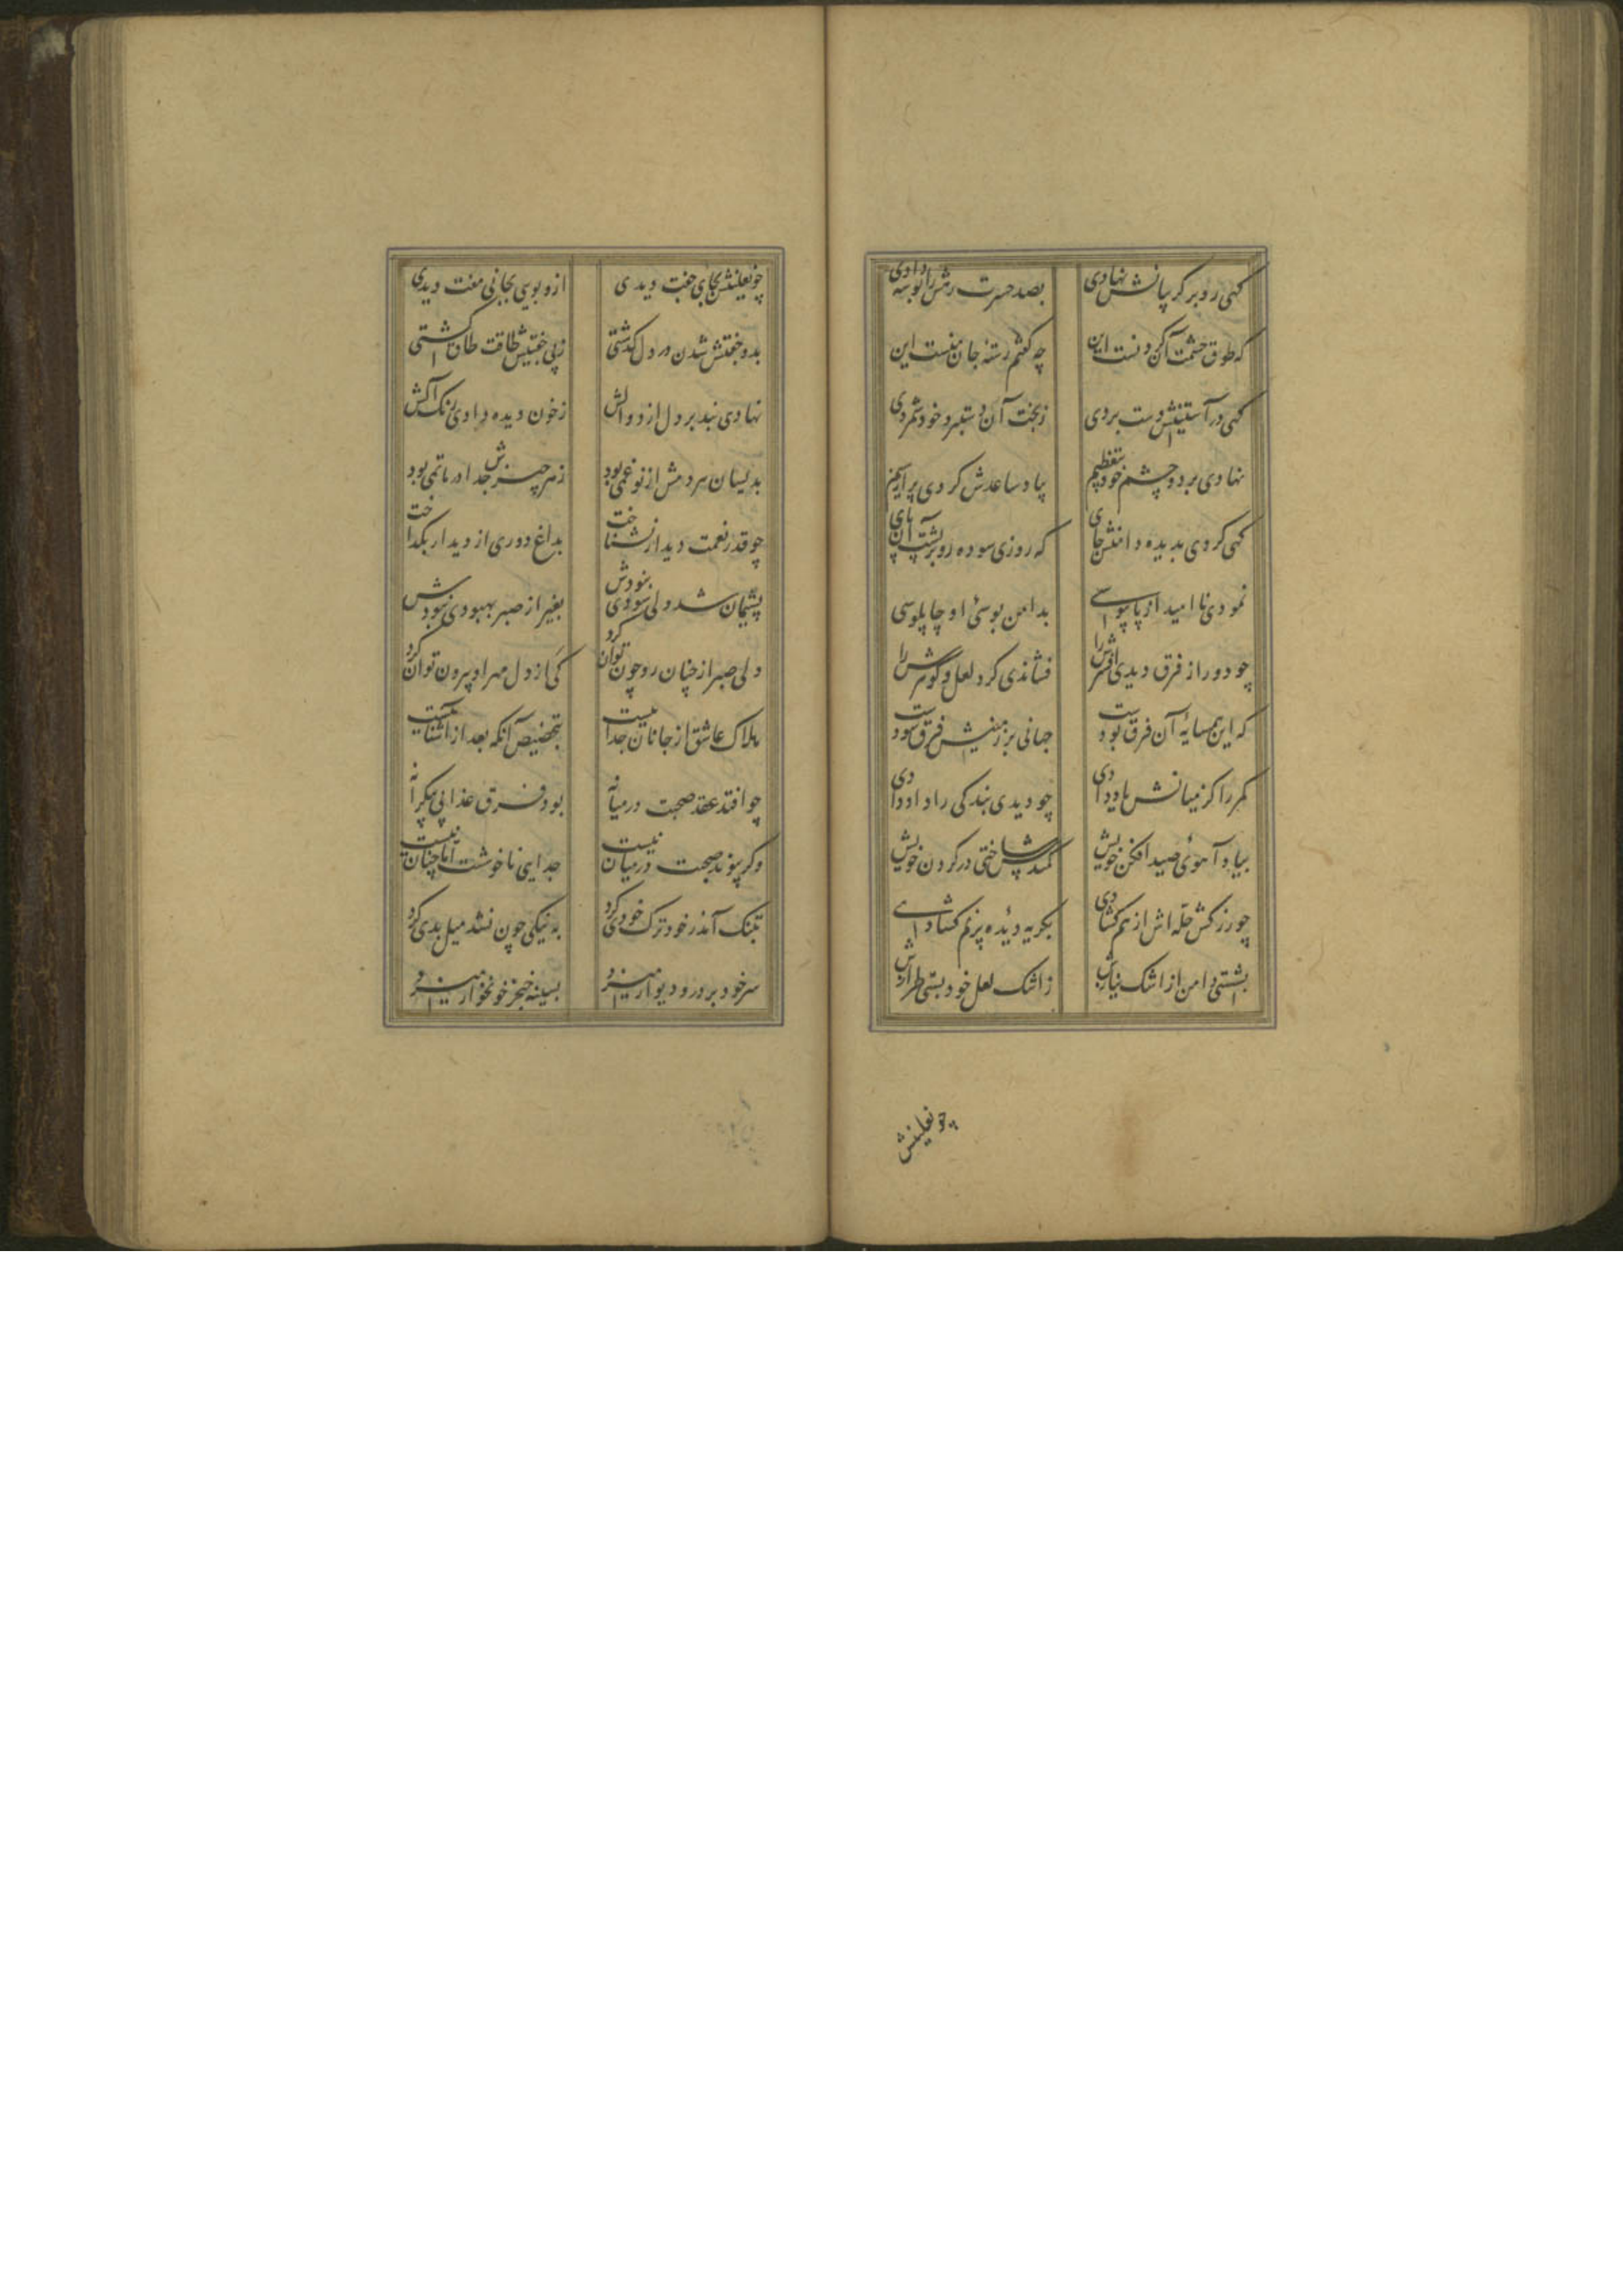 کهی رو بر کریبانش نهادی بصد حسرت رهش را بوسه دادی
که طوق حشمت آن کردنست این چه گفتم رشتهٔ جان منست این
کهی در آستینش دست بردی زبخت آن دستبرد خود شمردی
نهادی بر دو چشم خود بتعظیم بیاد ساعدش کردی پر از سیم
کهی کردی بدیده دامنش جای که روزی سوده رو بر پشت آن پای
نمودی ناامید از پایبوسی بدامن بوسئ او چاپلوسی
چو دور از فرق دیدی افسرش را فشاندی کرد لعل و گوهرش را
که این همسایهٔ آن فرق بودست جهانی بر زمینش فرق سودست
کمر را کز میانش یاد دادی چو دیدی بندکی را داد دادی
بیاد آهوئ صید افکن خویش کمندش ساختی در کردن خویش
چو زرکش حله اش از هم کشادی بکریه دیدهٔ پرنم کشادی
بشستی دامن از اشک نیازش ز اشک لعل خود بستی طرازش
چو نعلینش
چو نعلینش بجای جفت دیدی ازو بویی بجانی مفت دیدی
بدو جفتش شدن در دل کذشتی زبی جفتیش طاقت طاق کشتی
نهادی بند بر دل از دوالش زخون دیده دادی رنک آلش
بدینسان هر دمش از نو غمی بود زهر چیزش جدا در ماتمی بود
چو قدر نعمت دیدار نشناخت بداغ دوری از دیدار بکداخت
پشیمان شد ولی سودی نبودش بغیر از صبر بهبودی نبودش
ولی صبر از چنان رو چون توان کرد کی از دل مهر او بیرون توان کرد
هلاک عاشق از جانان جداییست بتخصیص آنکه بعد از آشناییست
چو افتد عقد صحبت در میانه بود فرقت عذابی بیکرانه
وکر پیوند صحبت در میان نیست جدایی ناخوشست اما چنان نیست
بتنک آمد ز خود ترک خودی کرد به نیکی چون نشد میل بدی کرد
سر خود بر در و دیوار میزد بسینه خنجر خونخوار میزد